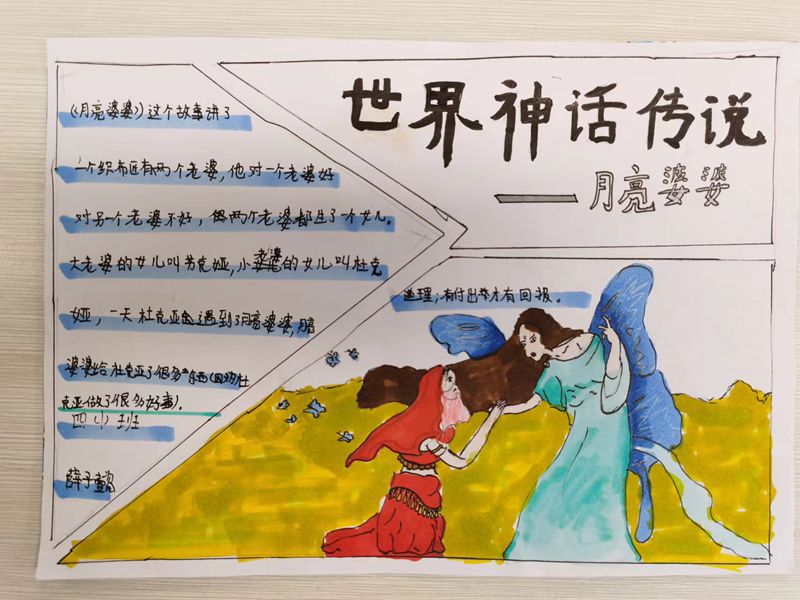 世界神话传说
——月亮婆婆
《月亮婆婆》这个故事讲了
一个织布匠有两个老婆,他对一个老婆好
对另一个老婆不好,但两个老婆都生了一个女儿。
大老婆的女儿叫芳克娅,小老婆的女儿叫杜克
娅,一天杜克亚遇到了月亮婆婆,月亮
婆婆给杜克亚了很多东西(因为杜
克亚做了很多好事)。
四(小)班
薛子萱
道理:有付出才有回报。